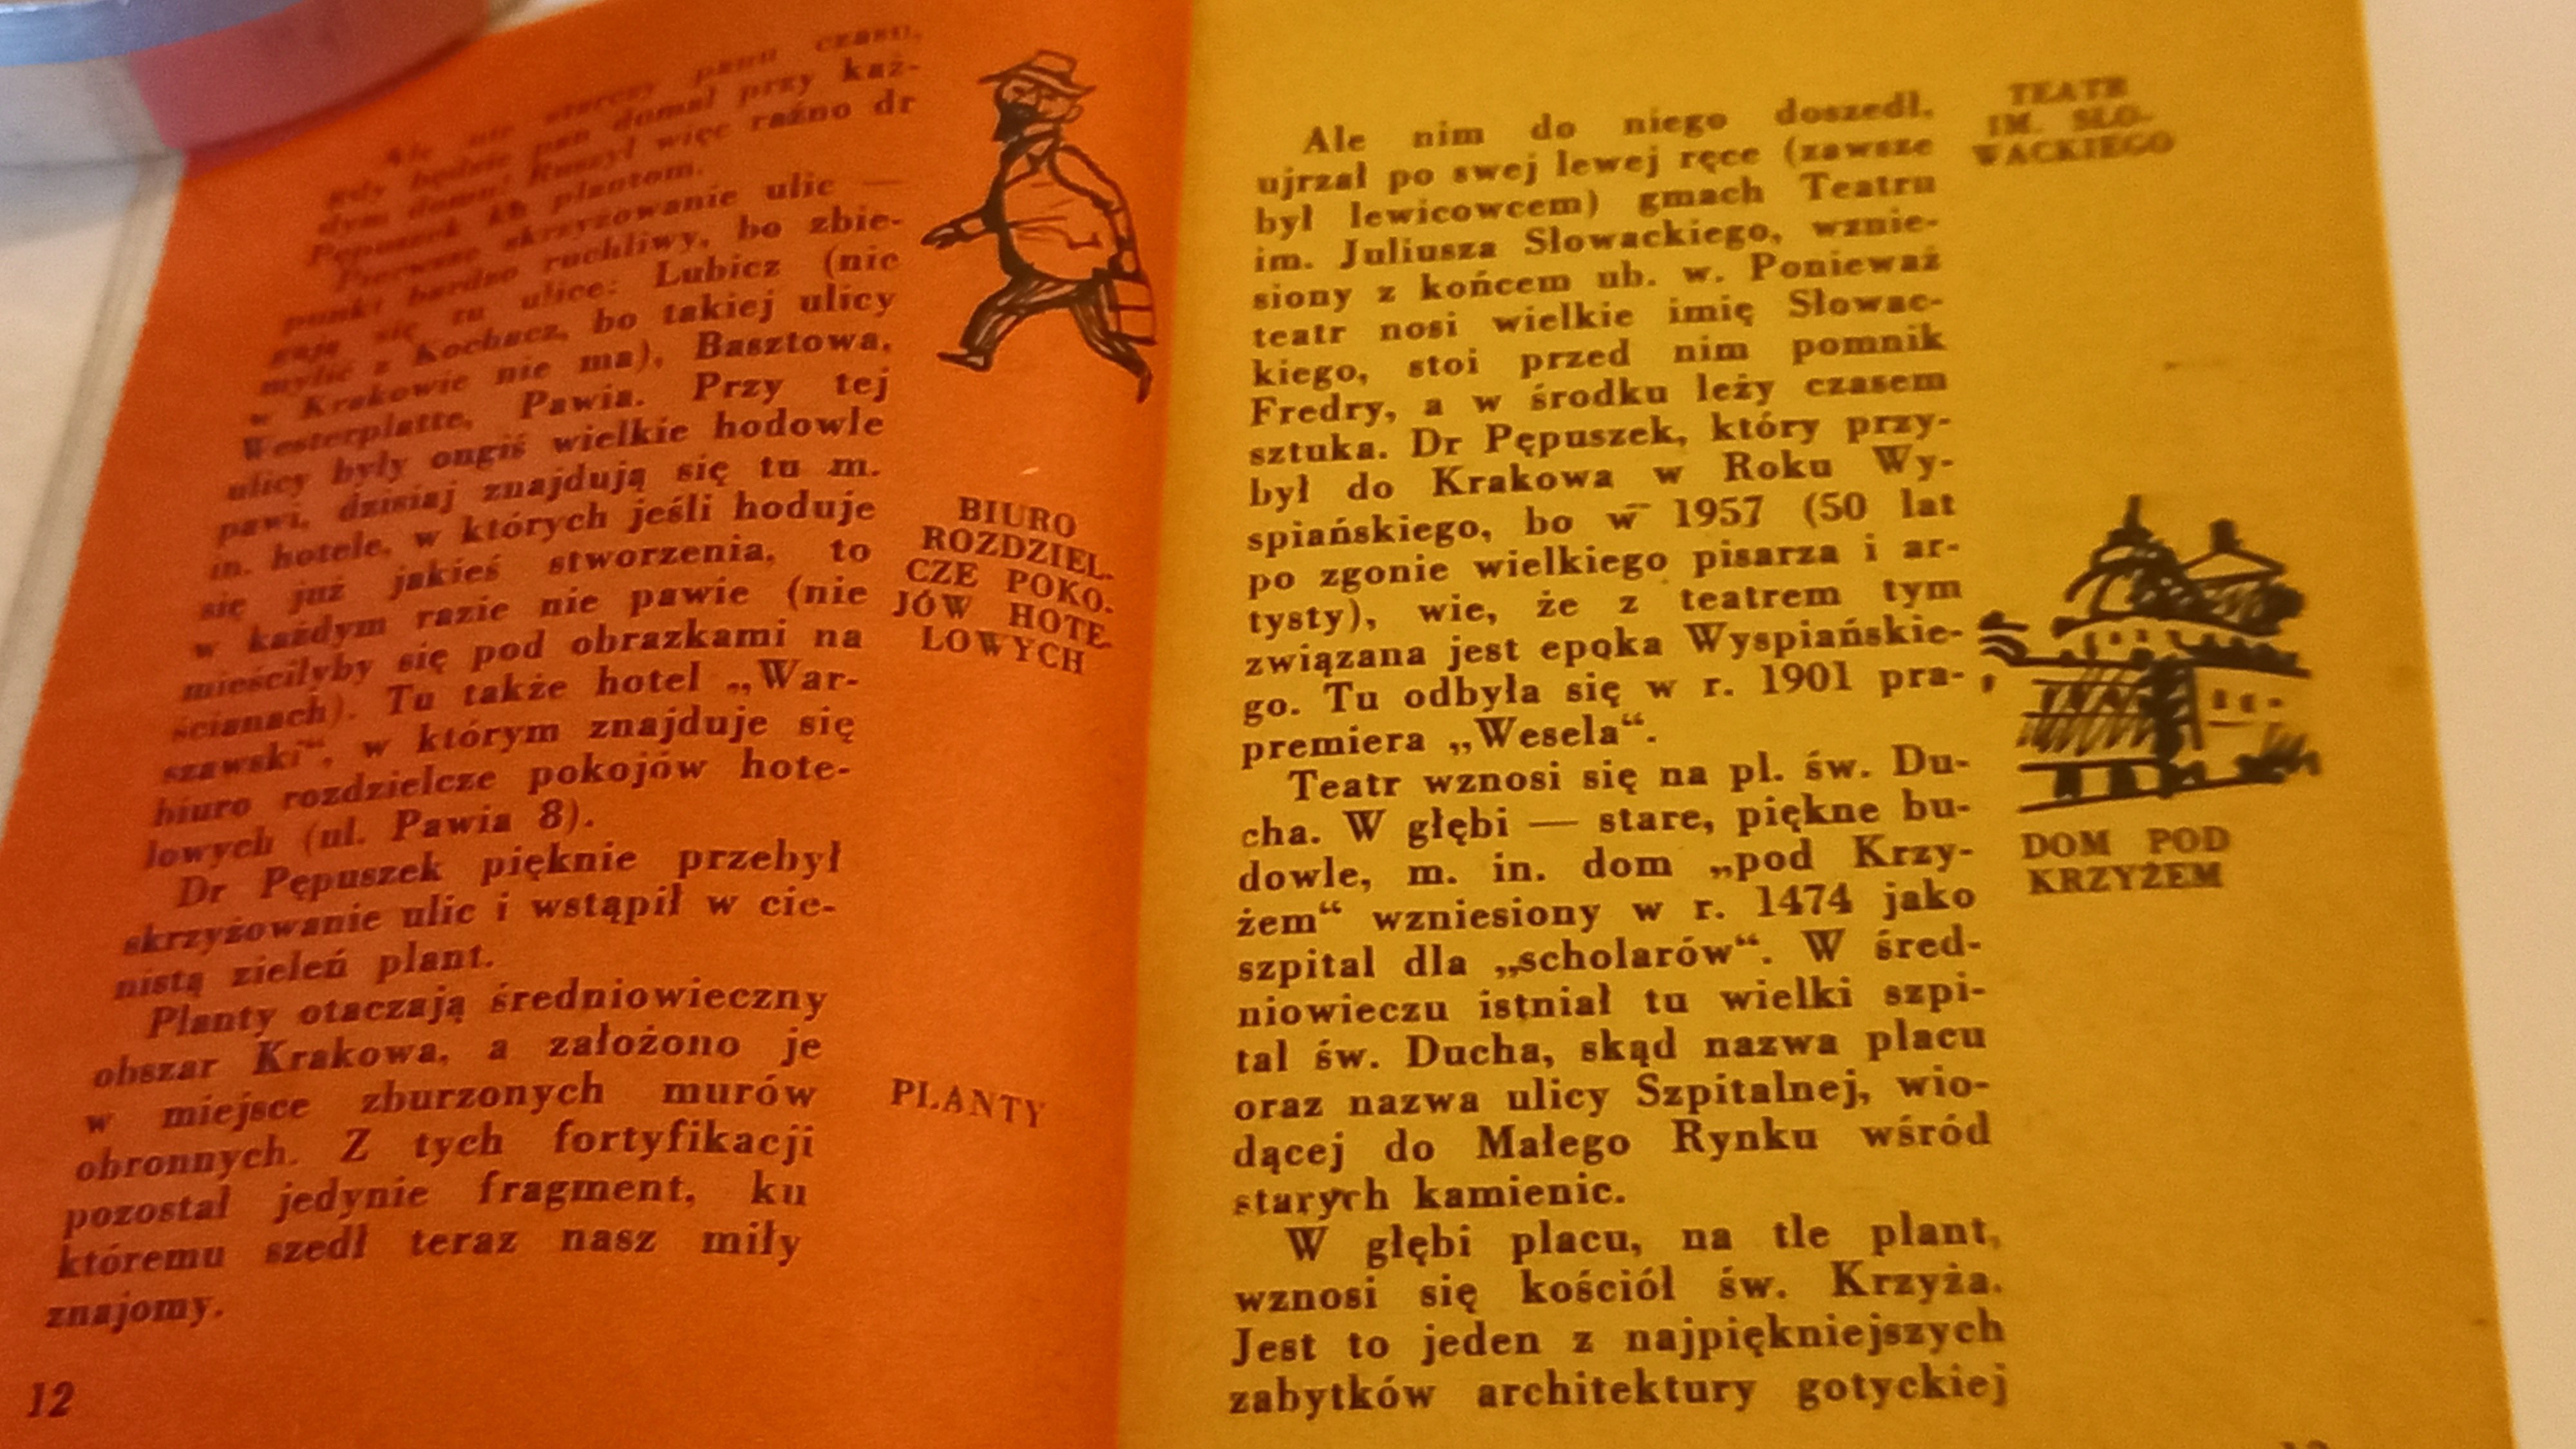 Ale nie starczy panu czasu,
gdy będzie pan domał przy każ-
dym domu! Ruszył więc raźno dr
Pępuszek ku plantom.
Pierwsze skrzyżowanie ulic —
punkt bardzo ruchliwy, bo zbie-
gają się tu ulice: Lubicz (nie
mylić z Kochacz, bo takiej ulicy
w Krakowie nie ma), Basztowa,
Westerplatte, Pawia. Przy tej
ulicy były ongiś wielkie hodowle
pawi, dzisiaj znajdują się tu m.
in. hotele, w których jeśli hoduje
się już jakieś stworzenia, to
w każdym razie nie pawie (nie
mieściłyby się pod obrazkami na
ścianach). Tu także hotel „War-
szawski“, w którym znajduje się
biuro rozdzielcze pokojów hote-
lowych (ul. Pawia 8).
Dr Pępuszek pięknie przebył
skrzyżowanie ulic i wstąpił w cie-
nistą zieleń plant.
Planty otaczają średniowieczny
obszar Krakowa, a założono je
w miejsce zburzonych murów
obronnych. Z tych fortyfikacji
pozostał jedynie fragment, ku
któremu szedł teraz nasz miły
znajomy.
BIURO
ROZDZIEL-
CZE POKO-
JÓW HOTE-
LOWYCH
PLANTY
12
Ale nim do niego doszedł,
ujrzał po swej lewej ręce (zawsze
był lewicowcem) gmach Teatru
im. Juliusza Słowackiego, wznie-
siony z końcem ub. w. Ponieważ
teatr nosi wielkie imię Słowac-
kiego, stoi przed nim pomnik
Fredry, a w środku leży czasem
sztuka. Dr Pępuszek, który przy-
był do Krakowa w Roku Wy-
spiańskiego, bo w 1957 (50 lat
po zgonie wielkiego pisarza i ar-
tysty), wie, że z teatrem tym
związana jest epoka Wyspiańskie-
go. Tu odbyła się w r. 1901 pra-
premiera „Wesela“.
Teatr wznosi się na pl. św. Du-
cha. W głębi — stare, piękne bu-
dowle, m. in. dom „pod Krzy-
żem“ wzniesiony w r. 1474 jako
szpital dla „scholarów“. W śred-
niowieczu istniał tu wielki szpi-
tal św. Ducha, skąd nazwa placu
oraz nazwa ulicy Szpitalnej, wio-
dącej do Małego Rynku wśród
starych kamienic.
W głębi placu, na tle plant,
wznosi się kościół św. Krzyża.
Jest to jeden z najpiękniejszych
zabytków architektury gotyckiej
TEATR
IM. SŁO-
WACKIEGO
DOM POD
KRZYŻEM